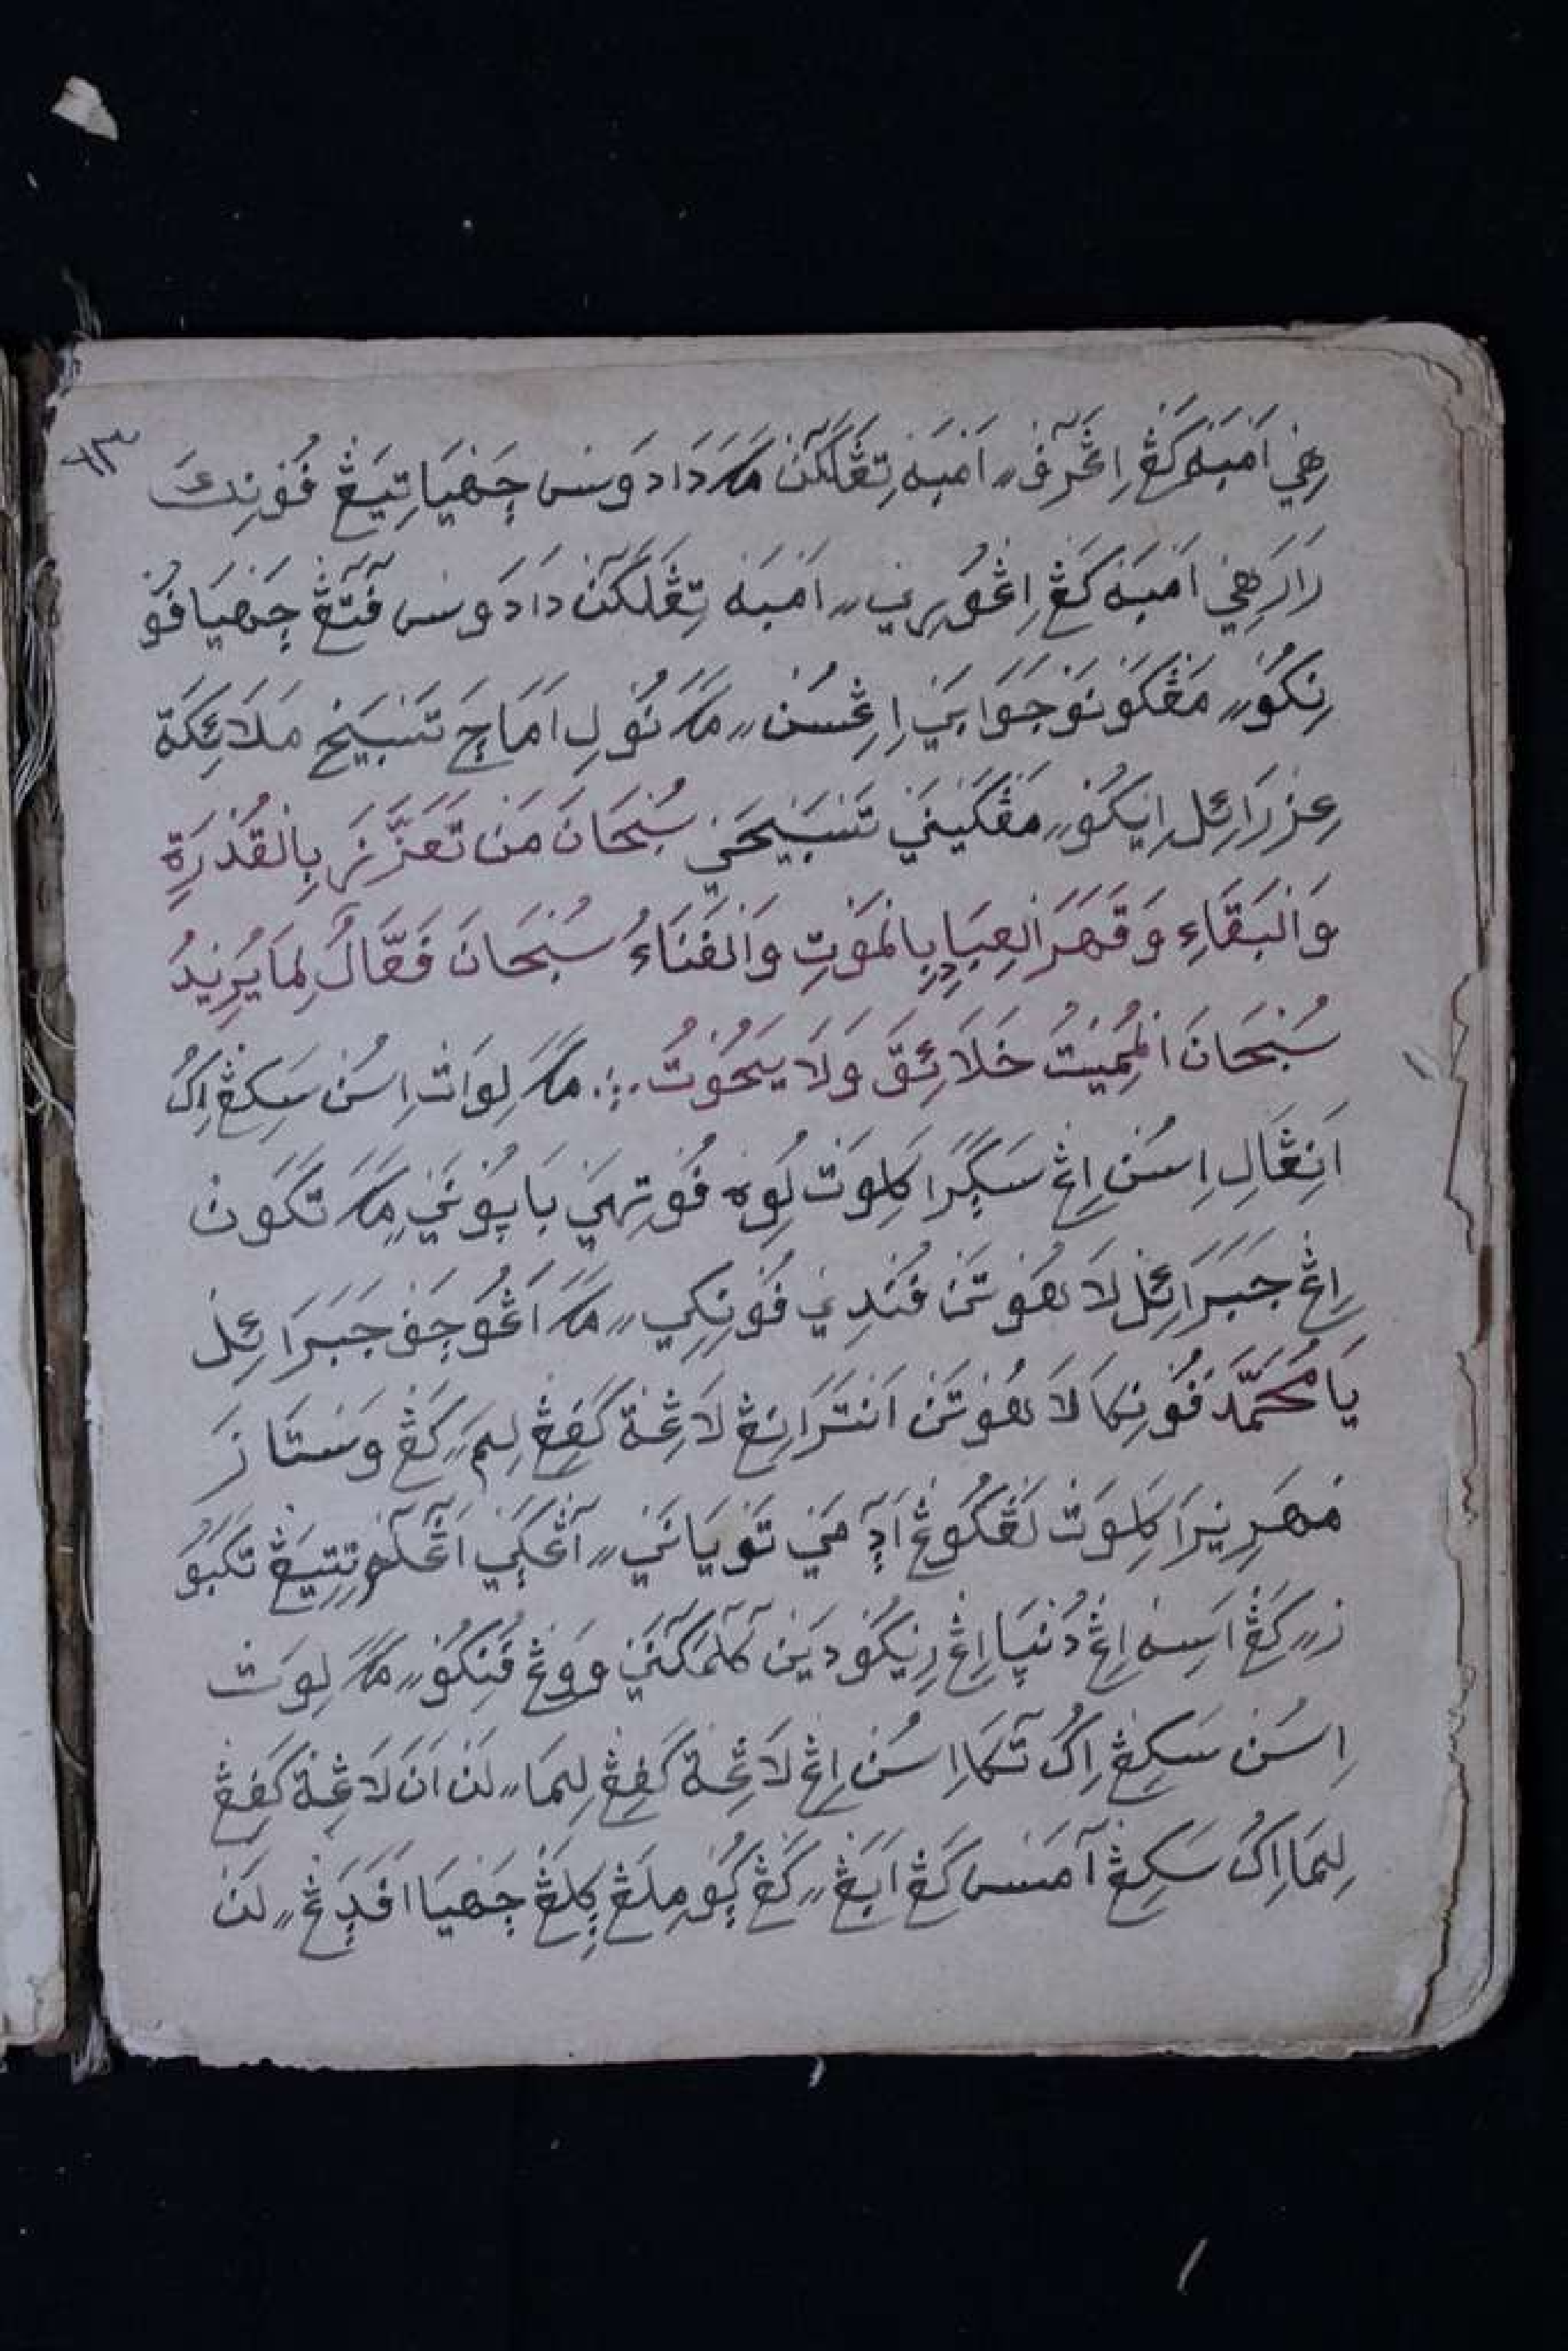 ٦٣
هِيْ اَمْبَهْ كَڠْ اِڠْرَڤْ٫٫ اَمْبَهْ تِڠَّلَكٓنْ مَكَ دَادَوْسْ جَهْيَا تِيَڠْ فُوْنِكَ
رَارَهِيْ اَمْبَهْ كَڠْ اِڠْوُرِيْ٫٫ اَمْبَهْ تِڠْلَكٓنْ دَادَوْسْ فٓتٓڠْ جَهْيَا فُوْ
نِكُوْ٫٫ مَڠْكَوْنَوْ جَوَابَيْ اِڠْسُنْ٫٫ مَكَ نُوْلِ اَمَاچَ تَسْبَيْحْ مَلَائِكَةْ
عِزْرَائِلْ اِيْكُوْ٫٫ مَڠْكَيْنَيْ تَسْبَيْحَيْ سُبْحَانَ مَنْ تَعَزَّزَ بِالْقُدْرَةِ
وَالْبَقَاءِ وَقَهَرَ الْعِبَادِ بِالْمَوْتِ وَالْفَنَاءُ سُبْحَانَ فَعَّالُ لِمَا يُرِيْدُ
سُبْحَانَ الْمُمِيْتُ خَلَائِقَ وَلَا يَمُوْتُ ∴ مَكَ لِوَاتْ اِسُنْ سَكِڠْ اِكُ
اَنِڠَالِ اِسُنْ اِڠْ سَڮَرَا كِلِوَتْ لُوِهْ فُوْتِهَيْ بَاپُوْنَيْ٫٫ مَكَ تَكَوْنْ
اِڠْ جَبَرَائِلْ لَا هُوْتَنْ فُنْدِيْ فُوْنِكِيْ٫٫ مَكَ اَڠُوْچَفْ جَبَرَائِلْ
يَا مُحَمَّدْ فُوْنِكَا لَاهُوْتَنْ اَنْتَرَانِڠْ لَاڠِةْ كَفِڠْ لِمَ٫٫ كَڠْ وَسْتَا زَ
مْهَرِيْرَا كِلِوَتْ لَڠْكُوڠْ اَدٓمَيْ تَوْيَانَيْ٫٫ آڠْكَيْ اَڠْكٓمْ تِتِيَڠْ تَكَبُوْ
رْ٫٫ كَڠْ اَسِهْ اِڠْ دُنْيَا اِڠْرِيْكُوْ دَيْنْ كٓلٓمَكٓنَيْ وَوڠْ فُنِكُوْ٫٫ مَكَ لِوَتْ
اِسُنْ سَكِڠْ اِكُ تٓكَا اِسُنْ اِڠْ لَاڠِةْ كَفِڠْ لِيْمَا٫٫ لَنْ اَنَ لَاڠِةْ كَفِڠْ
لِيْمَا اِكُ سَكِڠْ آمَسْ كَڠْ اَبَڠْ٫٫ كَڠْ ڮُوْمِلَڠْ ڮِلَڠْ چَهْيَا اَفَدَڠْ٫٫ لَنْ